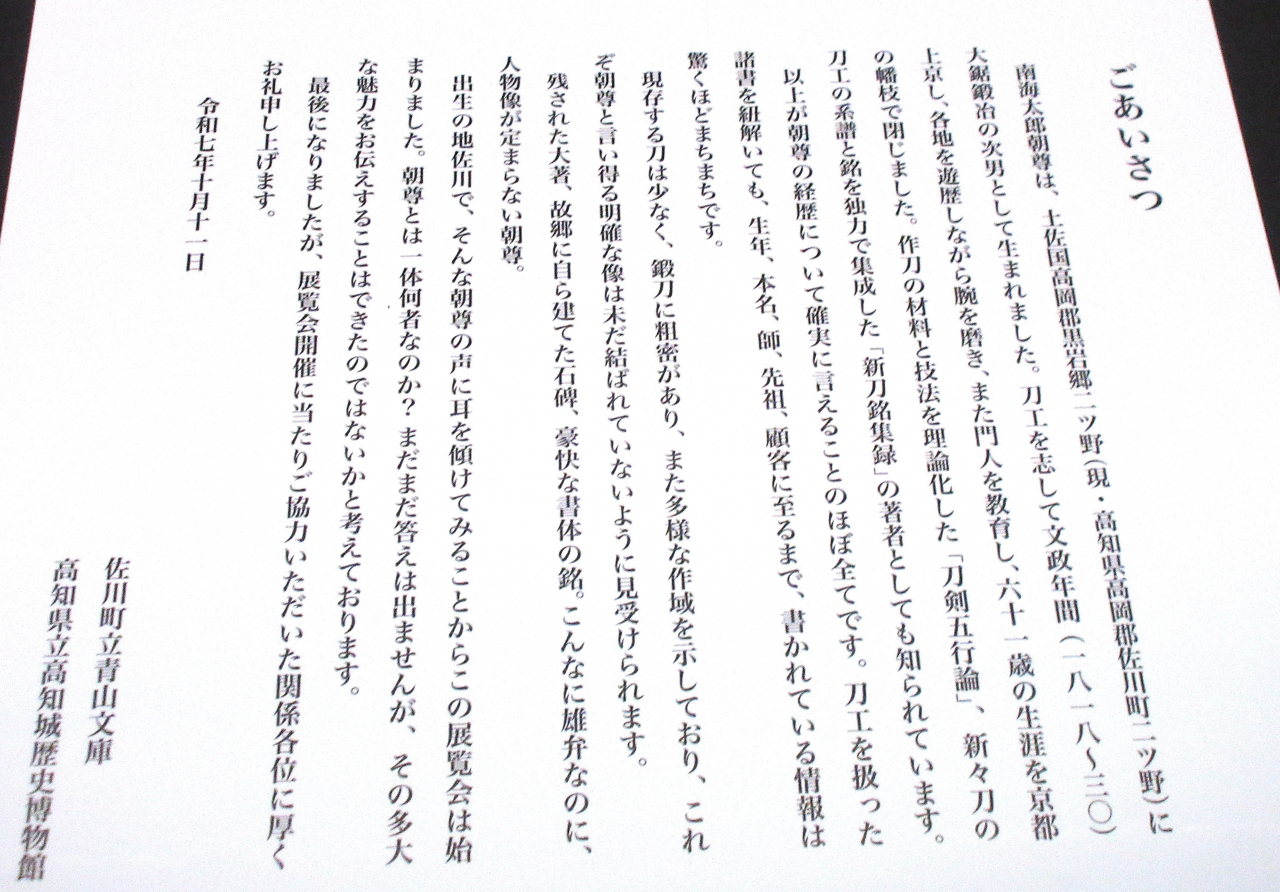 ごあいさつ
南海太郎朝尊は、土佐国高岡郡黒岩郷二ツ野（現・高知県高岡郡佐川町二ツ野）に
大鋸鍛冶の次男として生まれました。刀工を志して文政年間（一八一八〜三〇）
上京し、各地を遊歴しながら腕を磨き、また門人を教育し、六十一歳の生涯を京都
の幡枝で閉じました。作刀の材料と技法を理論化した「刀剣五行論」、新々刀の
刀工の系譜と銘を独力で集成した「新刀銘集録」の著者としても知られています。
以上が朝尊の経歴について確実に言えることのほぼ全てです。刀工を扱った
諸書を紐解いても、生年、本名、師、先祖、顧客に至るまで、書かれている情報は
驚くほどまちまちです。
現存する刀は少なく、鍛刀に粗密があり、また多様な作域を示しており、これ
ぞ朝尊と言い得る明確な像は未だ結ばれていないように見受けられます。
残された大著、故郷に自ら建てた石碑、豪快な書体の銘。こんなに雄弁なのに、
人物像が定まらない朝尊。
出生の地佐川で、そんな朝尊の声に耳を傾けてみることからこの展覧会は始
まりました。朝尊とは一体何者なのか？まだまだ答えは出ませんが、その多大
な魅力をお伝えすることはできたのではないかと考えております。
最後になりましたが、展覧会開催に当たりご協力いただいた関係各位に厚く
お礼申し上げます。
令和七年十月十一日
佐川町立青山文庫
高知県立高知城歴史博物館